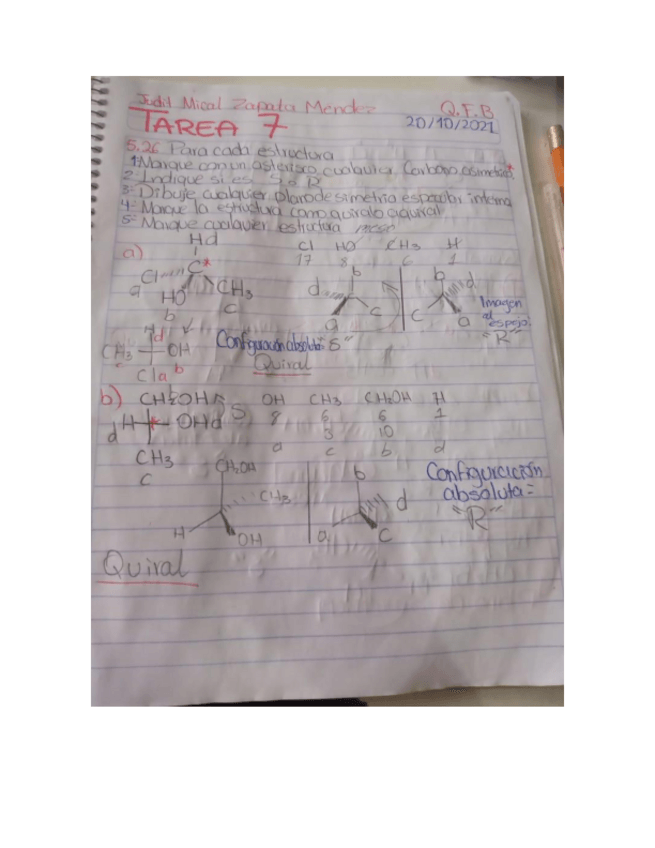 Judit Mical Zapata Mendez
Q.F.B
TAREA 7
20/10/2021
5.26 Para cada estructura
1-Marque con un asterisco cualquier Carbono asimetrico*
2-Indique si es S o R
3-Dibuje cualquier plano de simetria especular interna
4- Marque la estructura como quiral o aquiral
5- Marque cualquier estructura meso
a)
Hd
Cl HO CH3 H
17 8 6 1
Cl C*
a HO CH3
b c
d b a c
b d c a
Imagen
al
espejo:
"R"
H d
CH3 OH
c b
Cl a
Configuración absoluta: "S"
Quiral
b) CH2OH S OH CH3 CH2OH H
d H * OHa 8 6 6 1
3 10
CH3 a c b d
c
CH2OH
CH3
H OH
b
d
a c
Configuración
absoluta=
"R"
Quiral